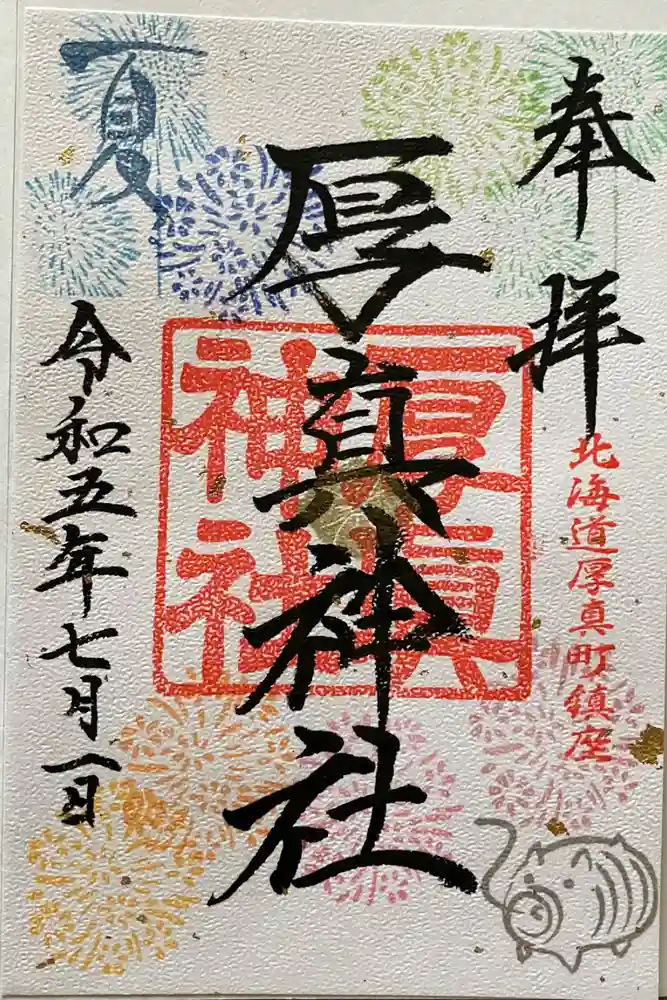 奉拝
北海道厚真町鎮座
厚真神社
厚眞
神社
夏
令和五年七月一日